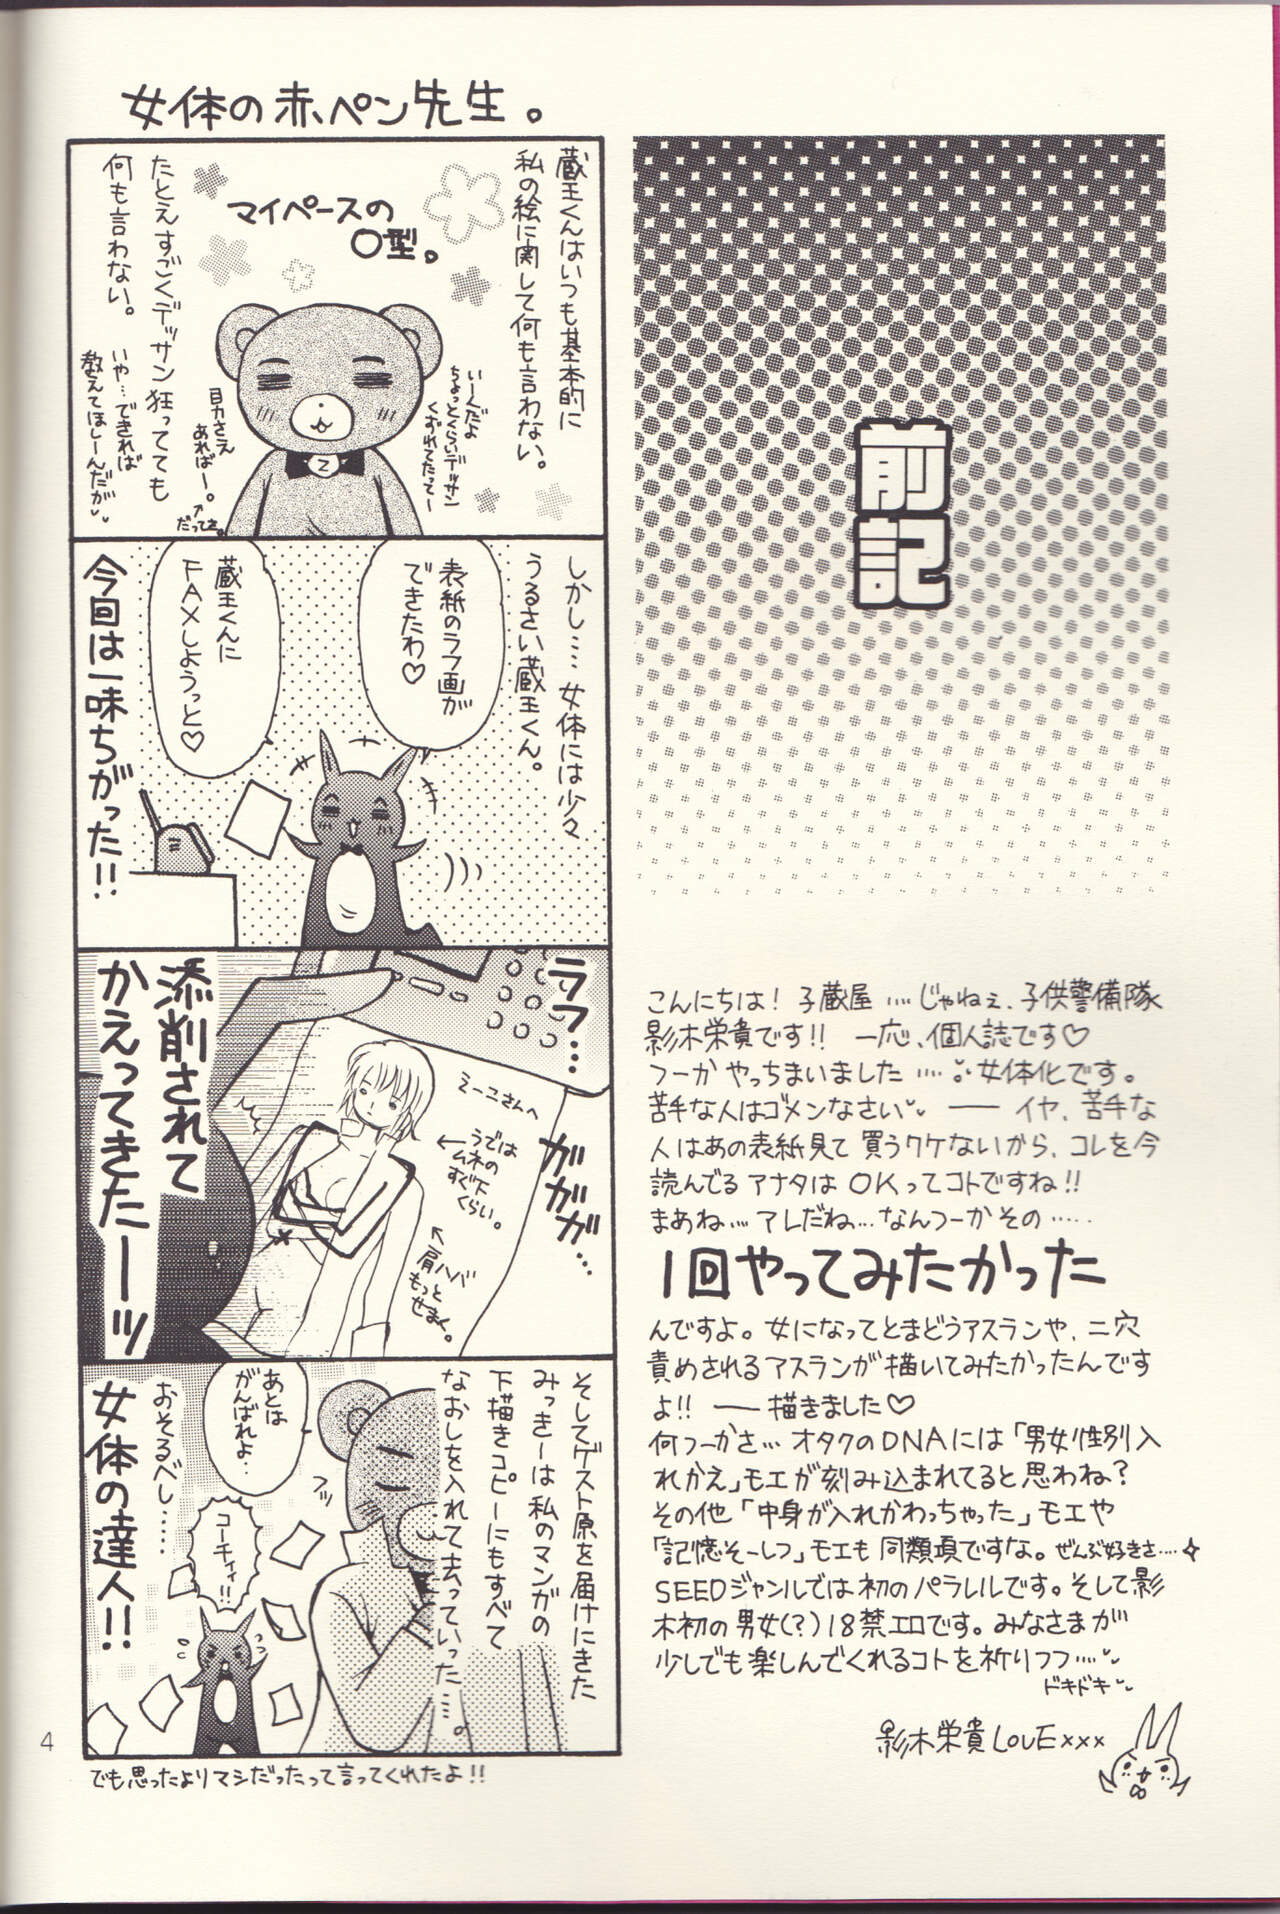 前記
こんにちは！子蔵屋……じゃねぇ、子供警備隊
影木栄貴です!!　一応、個人誌です♡
フーか やっちまいました……女体化です。
苦手な人はゴメンなさい ── イヤ、苦手な
人はあの表紙見て買うワケないから、コレを今
読んでるアナタはOKってコトですね!!
まあね…アレだね…なんフーかその……
1回やってみたかった
んですよ。女になってとまどうアスランや、二穴
責めされるアスランが描いてみたかったんです
よ!! ── 描きました♡
何フーかさ…オタクのDNAには「男女性別入
れかえ」モエが刻み込まれてると思わね？
その他「中身が入れかわっちゃった」モエや
「記憶そーしつ」モエも同類項ですな。ぜんぶ好きさ…
SEEDジャンルでは初のパラレルです。そして影
木初の男女(？)18禁エロです。みなさまが
少しでも楽しんでくれるコトを祈りフフ……
ドキドキ
影木栄貴LOVE×××
女体の赤ペン先生。
蔵王くんはいつも基本的に
私の絵に関して何も言わない。
マイペースの
O型。
いーんだよ
ちょっとくらいデッサン
くずれてたって～
目力さえ
あればー。
←だってさ。
たとえすごくデッサン狂ってても
何も言わない。
いや…できれば
教えてほしーんだが
しかし……女体には少々
うるさい蔵王くん。
表紙のラフ画が
できたわ♡
蔵王くんに
FAXしようっと♡
今回は一味ちがった!!
ラフ…
ガガガ…
えーこさんへ
←うでは
ムネの
すぐ下
くらい。
←肩ハバ
もっと
せまく。
添削されて
かえってきたーーッ
そしてゲスト原を届けにきた
みっきーは私のマンガの
下描きコピーにもすべて
なおしを入れて去っていった……。
フッ
あとは
がんばれよ…
コーチィ!!
おそるべし……
女体の達人!!
でも思ったよりマシだったって言ってくれたよ!!
4